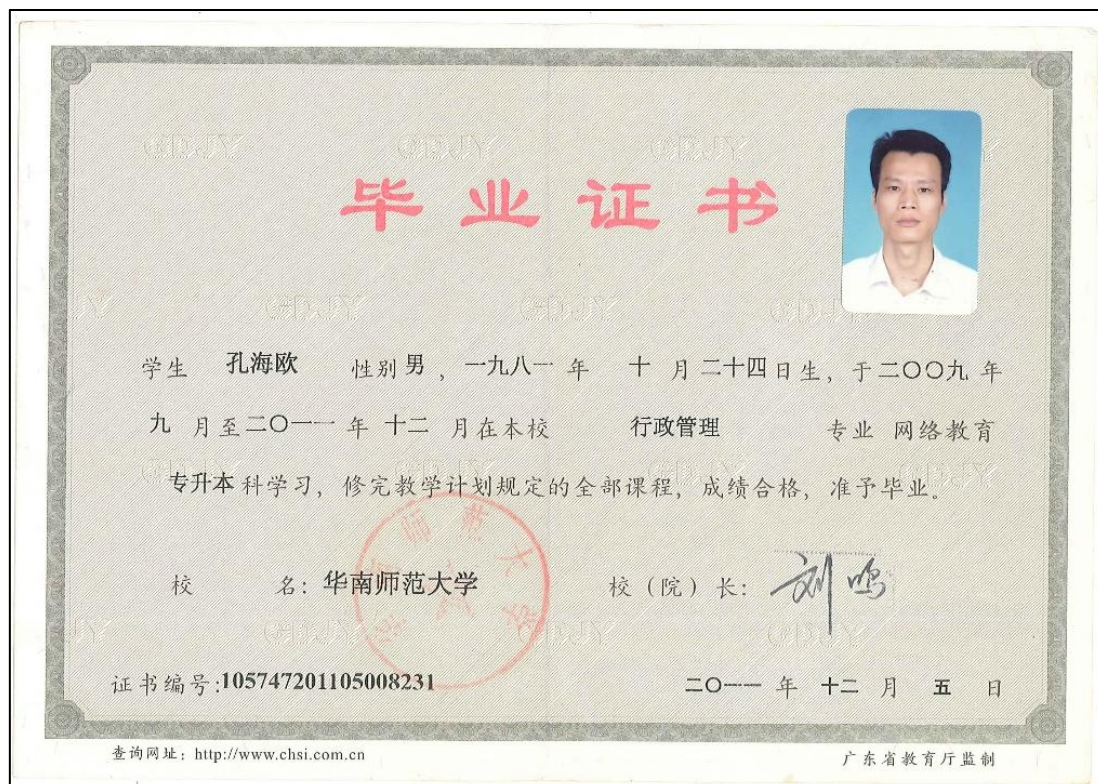 毕业证书
学生 孔海欧 性别 男，一九八一 年 十 月 二十四 日生，于 二〇〇九 年
九 月至 二〇一一 年 十二 月在本校 行政管理 专业 网络教育
专升本 科学习，修完教学计划规定的全部课程，成绩合格，准予毕业。
校 名：华南师范大学 校（院）长：刘鸣
华南师范大学
证书编号:105747201105008231 二〇一一 年 十二 月 五 日
查询网址：http://www.chsi.com.cn 广东省教育厅监制